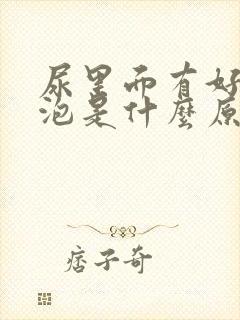 尿里面有好
泡是什麼原
痞子奇